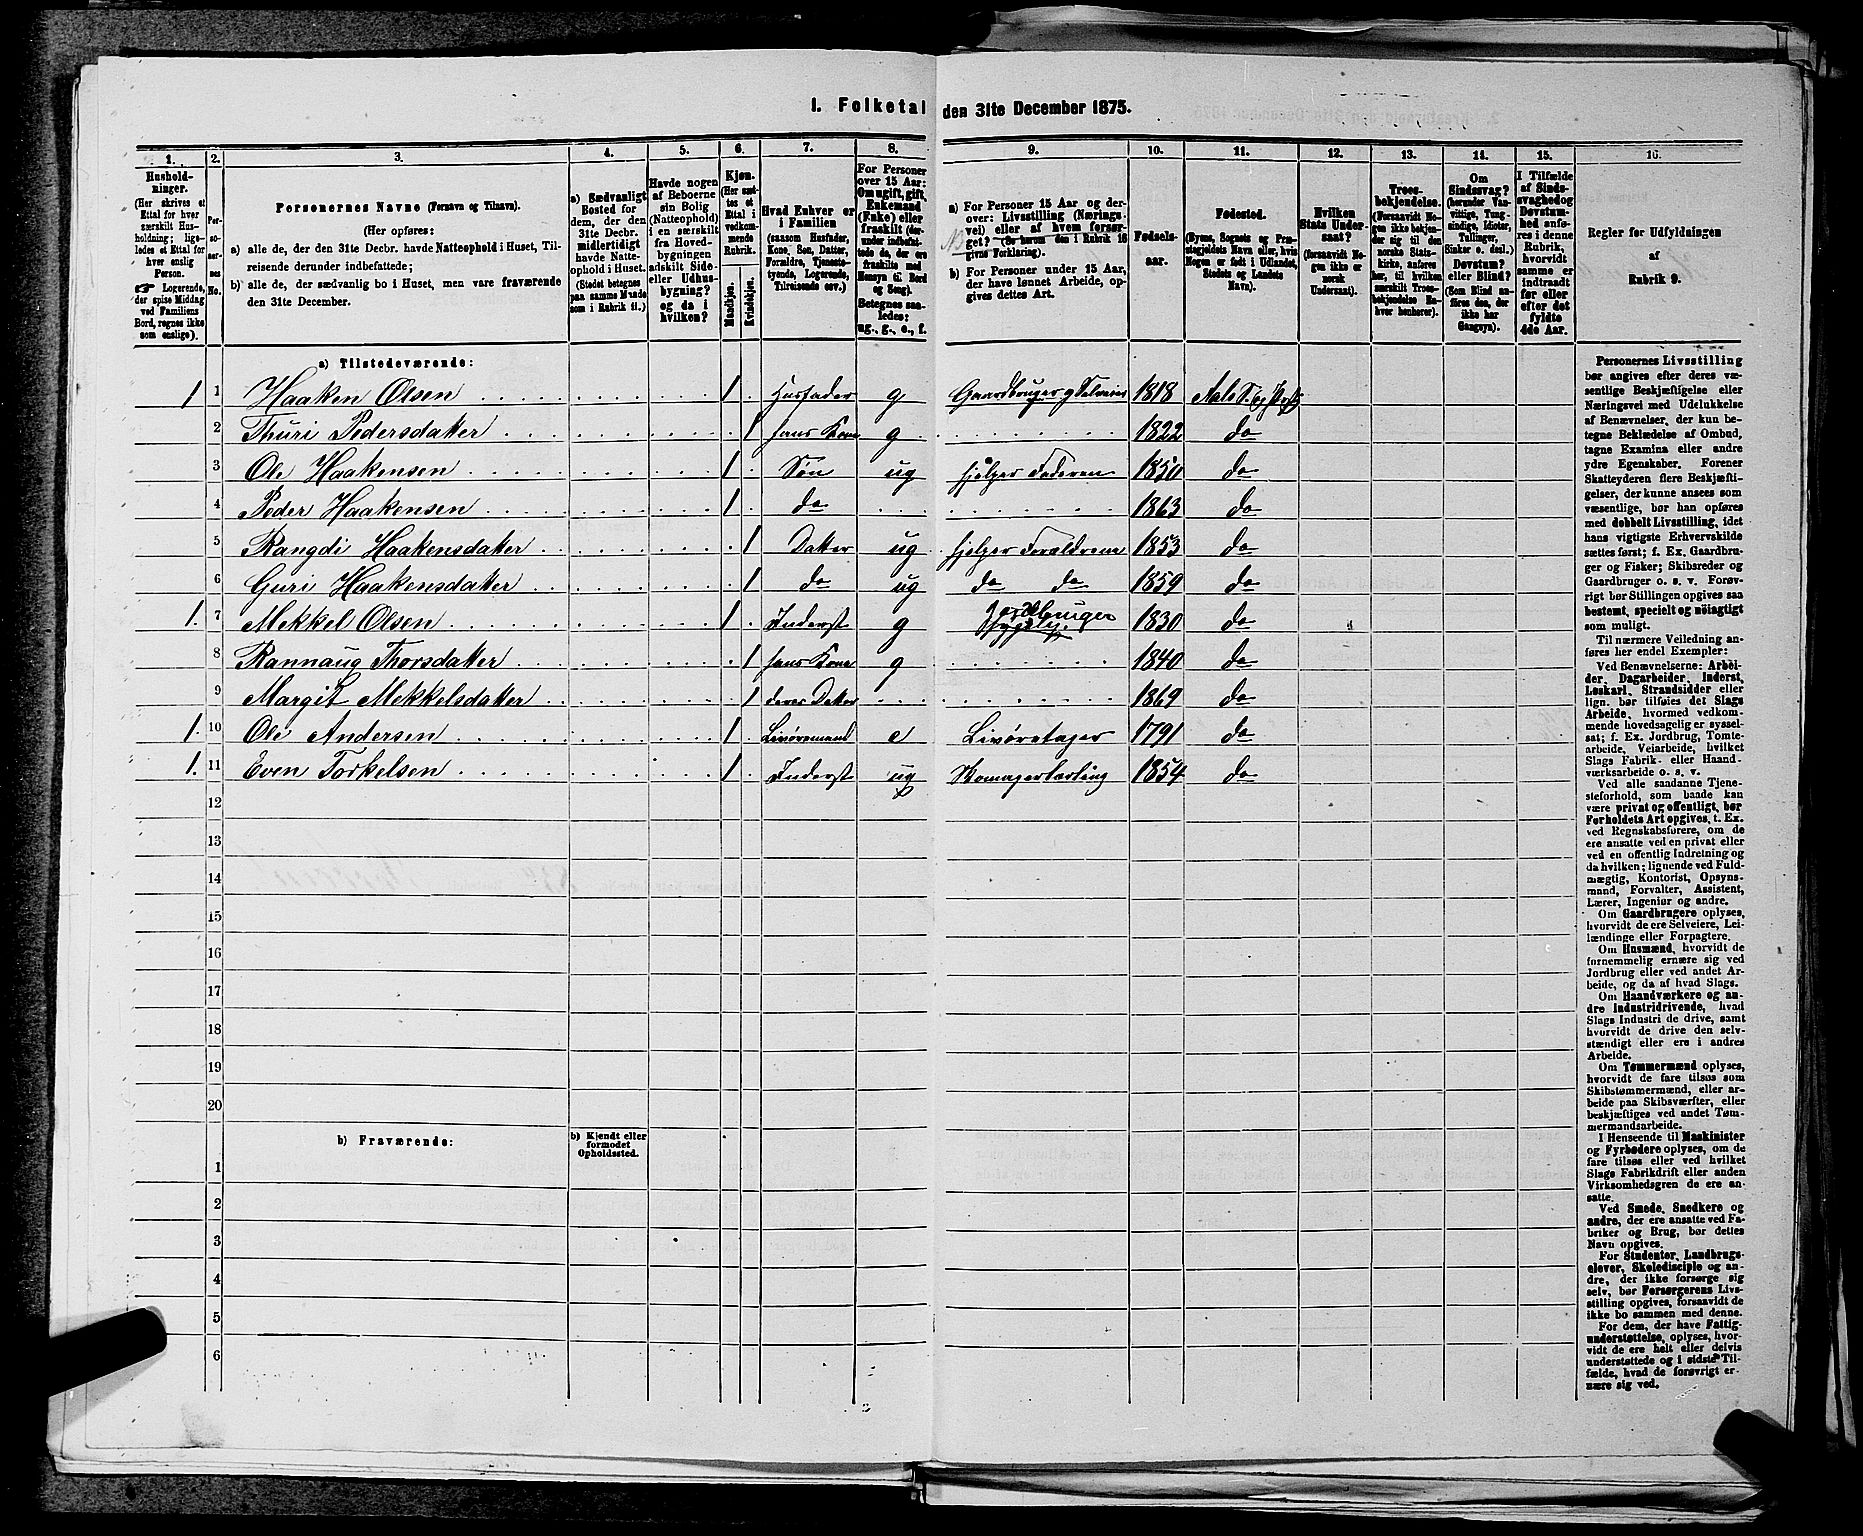 I. Folketal den 31te December 1875.
1.
Hushold-
ninger.
(Her skrives et
Ettal for hver
særskilt Hus-
holdning; lige-
ledes et Ettal for
hver enslig
Person.
☞ Logerende,
der spise Middag
ved Familiens
Bord, regnes ikke
som enslige).
2.
Per-
so-
ner-
nes
No.
3.
Personernes Navne (Fornavn og Tilnavn).
(Her opføres:
a) alle de, der den 31te Decbr. havde Natteophold i Huset, Til-
reisende derunder indbefattede;
b) alle de, der sædvanlig bo i Huset, men vare fraværende
den 31te December.
4.
a) Sædvanligt
Bosted for
dem, der den
31te Decbr.
midlertidigt
havde Natte-
ophold i Huset.
(Stedet betegnes
paa samme Maade
som i Rubrik 11.)
5.
Havde nogen
af Beboerne
sin Bolig
(Natteophold)
i en særskilt
fra Hoved-
bygningen
adskilt Side-
eller Udhus-
bygning?
og da i
hvilken?
6.
Kjøn.
(Her sæt-
tes et
Ettal i
vedkom-
mende
Rubrik.
Mandkjøn.
Kvindekjøn.
7.
Hvad Enhver er
i Familien
(saasom Husfader,
Kone, Søn, Datter,
Forældre, Tjeneste-
tyende, Logerende,
Tilreisende osv.)
8.
For Personer
over 15 Aar:
Om ugift, gift,
Enkemand
(Enke) eller
fraskilt (der-
under indbefat-
tede de, der ere
fraskilte med
Hensyn til Bord
og Seng).
Betegnes saa-
ledes:
ug., g., e., f.
9.
a) For Personer 15 Aar og der-
over: Livsstilling (Nærings-
vei) eller af hvem forsør-
get? (Se herom den i Rubrik 16
givne Forklaring).
b) For Personer under 15 Aar,
der have lønnet Arbeide, op-
gives dettes Art.
10.
Fødsels-
aar.
11.
Fødested.
(Byens, Sognets og Præ-
stegjeldets Navn eller, hvis
Nogen er født i Udlandet,
Stedets og Landets
Navn).
12.
Hvilken
Stats Under-
saat?
(forsaavidt No-
gen ikke er
norsk
Undersaat).
13.
Troes-
bekjendelse.
(Forsaavidt No-
gen ikke bekjen-
der sig til den
norske Stats-
kirke, anføres
her, til hvilken
særskilt Troes-
bekjendelse En-
hver henhører).
14.
Om
Sindssvag?
(herunder Van-
vittige, Tung-
sindige, Idioter,
Tullinger,
Sinker o. desl.).
Døvstum?
eller Blind?
(Som Blind an-
føres den, der
ikke har
Gangsyn).
15.
I Tilfælde
af Sinds-
svaghed og
Døvstum-
hed anfø-
res i denne
Rubrik,
hvorvidt
samme er
indtraadt
før eller
efter det
fyldte
4de Aar.
16.
Regler for Udfyldningen
af
Rubrik 9.
a) Tilstedeværende:
1 1 Haaken Olsen 1 Husfader g Gaardbruger og Selveier 1818
2 Thuri Pedersdatter 1 hans Kone g 1822 do
3 Ole Haakensen 1 Søn ug hjelper Faderen 1850 do
4 Peder Haakensen 1 do 1863 do
5 Rangdi Haakensdatter 1 Datter ug hjelper Forældrene 1853 do
6 Guri Haakensdatter 1 do ug do do 1859 do
1. 7 Mekkel Olsen 1 Inderst g Jordbruger 1830 do
8 Rannaug Thorsdatter 1 hans Kone g 1840 do
9 Margit Mekkelsdatter 1 deres Datter 1869 do
1. 10 Ole Andersen 1 Livøremand e Livøretager 1791 do
1. 11 Even Torkelsen 1 Inderst ug Skomagerlærling 1854 do
12
13
14
15
16
17
18
19
20
b) Fraværende:
b) Kjendt eller
formodet
Opholdssted.
1
2
3
4
5
6
Personernes Livsstilling
bør angives efter deres væ-
sentlige Beskjæftigelse eller
Næringsvei med Udelukkelse
af Benævnelser, der kun be-
tegne Beklædelse af Ombud,
tagne Examina eller andre
ydre Egenskaber. Forener
Skatteyderen flere Beskjæfti-
gelser, der kunne ansees som
væsentlige, bør han opføres
med dobbelt Livsstilling, idet
hans vigtigste Erhvervskilde
sættes først; f. Ex. Gaardbru-
ger og Fisker; Skibsreder og
Gaardbruger o. s. v. Forøv-
rigt bør Stillingen opgives saa
bestemt, specielt og nöiagtigt
som muligt.
Til nærmere Veiledning an-
føres her endel Exempler:
Ved Benævnelserne: Arbei-
der, Dagarbeider, Inderst,
Løskarl, Strandsidder eller
lign. bør tilføies det Slags
Arbeide, hvormed vedkom-
mende hovedsagelig er syssel-
sat; f. Ex. Jordbrug, Tomte-
arbeide, Veiarbeide, hvilket
Slags Fabrik- eller Haand-
værksarbeide o. s. v.
Ved alle saadanne Tjene-
steforhold, som baade kan
være privat og offentligt, bør
Forholdets Art opgives, t. Ex.
ved Regnskabsførere, om de
ere ansatte ved en privat eller
ved en offentlig Indretning og
da hvilken; lignende ved Fuld-
mægtig, Kontorist, Opsyns-
mand, Forvalter, Assistent,
Lærer, Ingeniør og andre.
Om Gaardbrugere oplyses,
hvorvidt de ere Selveiere, Lei-
lændinge eller Forpagtere.
Om Husmænd, hvorvidt de
fornemmelig ernære sig ved
Jordbrug eller ved andet Ar-
beide, og da af hvad Slags.
Om Haandværkere og an-
dre Industridrivende, hvad
Slags Industri de drive, samt
hvorvidt de drive den selv-
stændigt eller ere i andres
Arbeide.
Om Tømmermænd oplyses,
hvorvidt de fare tilsøs som
Skibstømmermænd, eller ar-
beide paa Skibsværfter, eller
beskjæftiges ved andet Tøm-
mermandsarbeide.
I Henseende til Maskinister
og Fyrbødere oplyses, om de
fare tilsøs eller ved hvilket
Slags Fabrikdrift eller anden
Virksomhedsgren de ere an-
satte.
Ved Smede, Snedkere og
andre, der ere ansatte ved Fa-
briker og Brug, bør dettes
Navn opgives.
For Studenter, Landbrugs-
elever, Skoledisciple og an-
dre, der ikke forsørge sig
selv, bør Forsørgerens Livs-
stilling opgives, forsaavidt de
ikke bo sammen med denne.
For dem, der have Fattig-
understøttelse, oplyses, hvor-
vidt de ere helt eller delvis
understøttede og i sidste Til-
fælde, hvad de forøvrigt er-
nære sig ved.